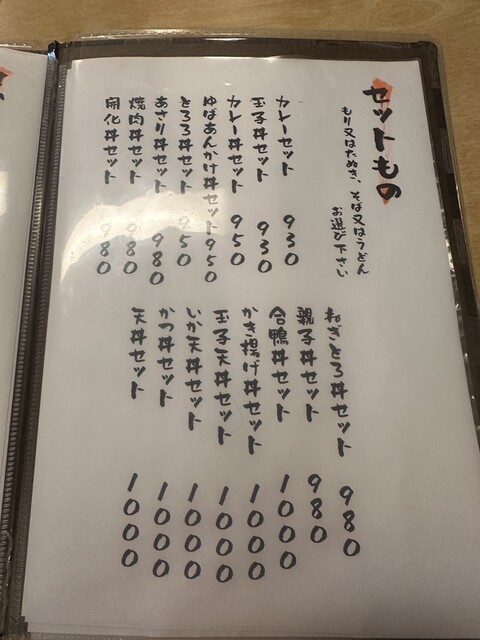 セットもの
もり又はたぬき、そば又はうどん
お選び下さい
カレーセット 930
玉子丼セット 930
カレー丼セット 950
ゆばあんかけ丼セット 950
とろろ丼セット 950
あさり丼セット 980
焼肉丼セット 980
開化丼セット 980
ねぎとろ丼セット 980
親子丼セット 980
合鴨丼セット 1000
かき揚げ丼セット 1000
玉子天丼セット 1000
いか天丼セット 1000
かつ丼セット 1000
天丼セット 1000